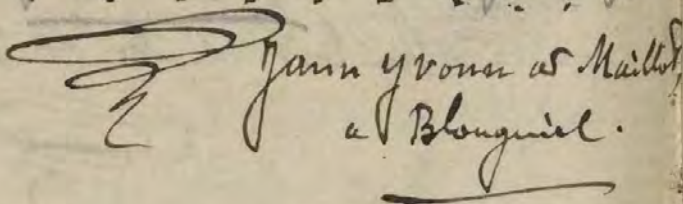 Yann Yvonn ar Maillot,
a Blouguiel.